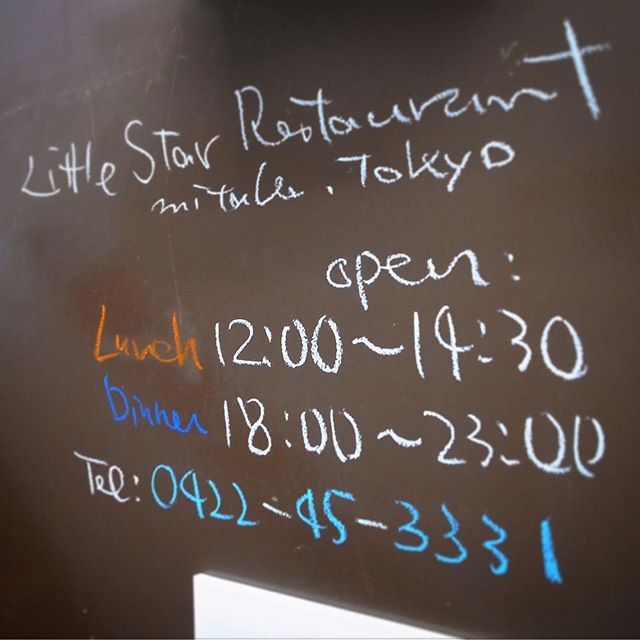 Little Star Restaurant
mitaka, Tokyo
open:
Lunch 12:00~14:30
Dinner 18:00~23:00
Tel: 0422-45-3331